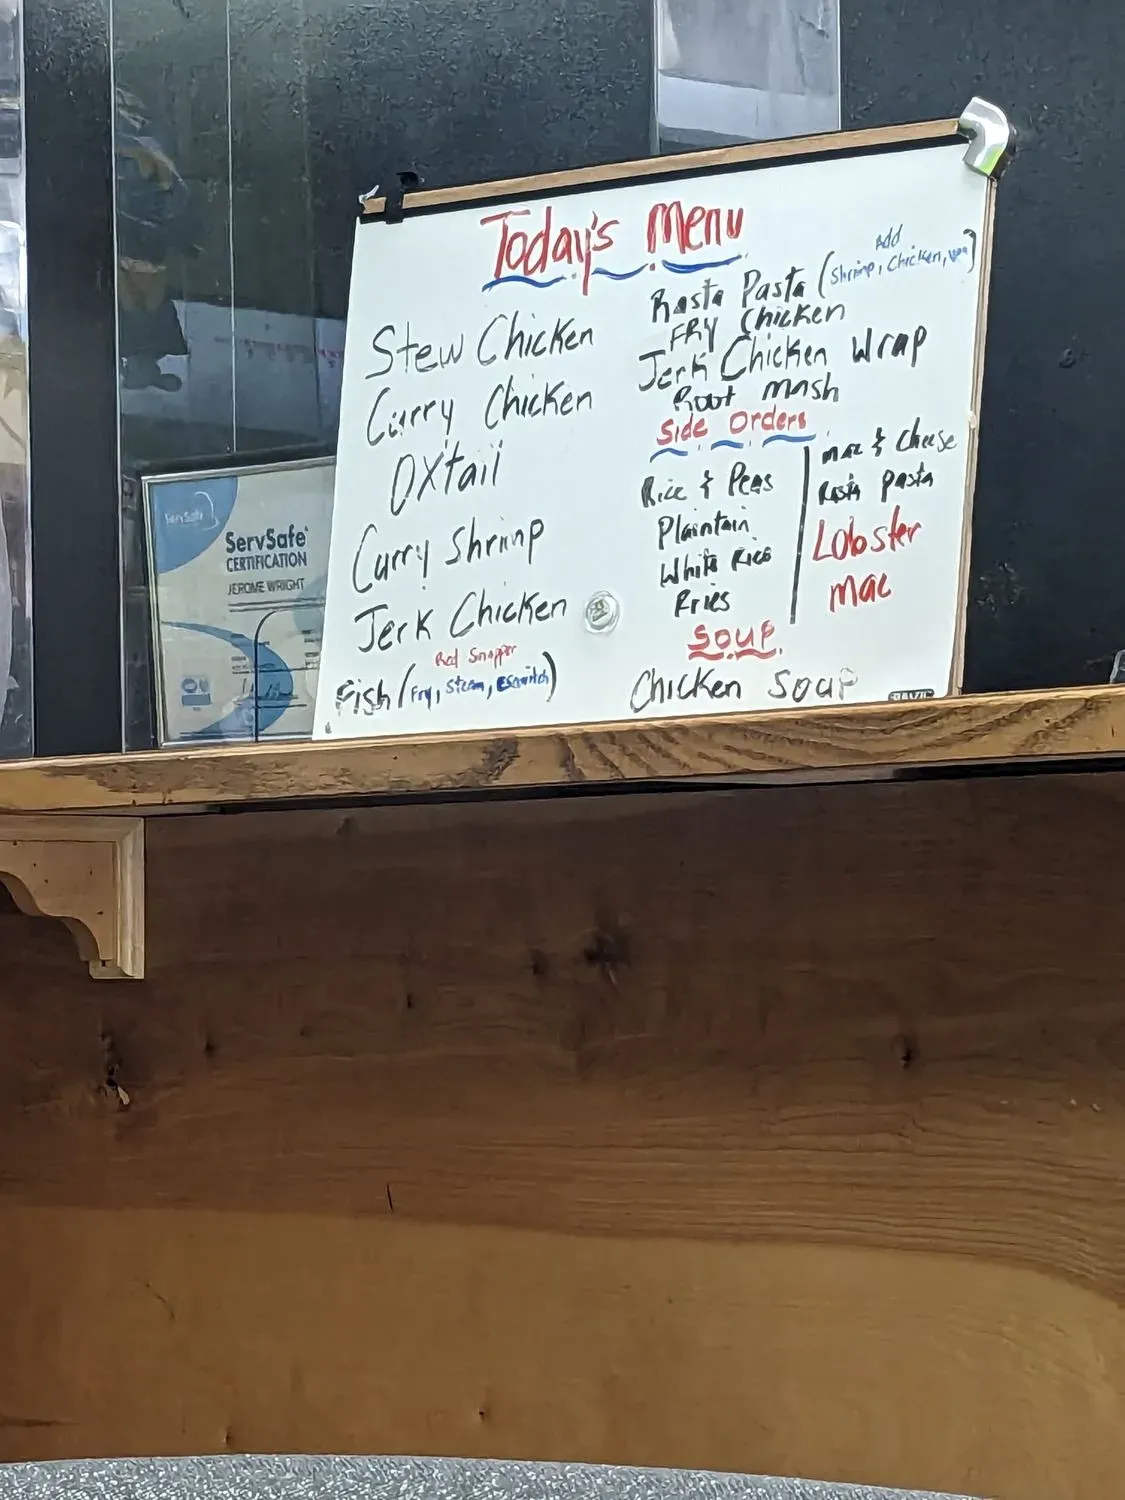 Today's Menu
Stew Chicken
Curry Chicken
Oxtail
Curry Shrimp
Jerk Chicken
Red Snapper
Fish (Fry, Steam, Escovitch)
Add
Rasta Pasta (Shrimp, Chicken,
FRY Chicken
Jerk Chicken Wrap
Root mash
Side Orders
Rice & Peas
Plaintain
White Rice
Fries
mac & cheese
Rasta pasta
Lobster
mac
Soup
Chicken Soup
ServSafe
ServSafe
CERTIFICATION
JEROME WRIGHT